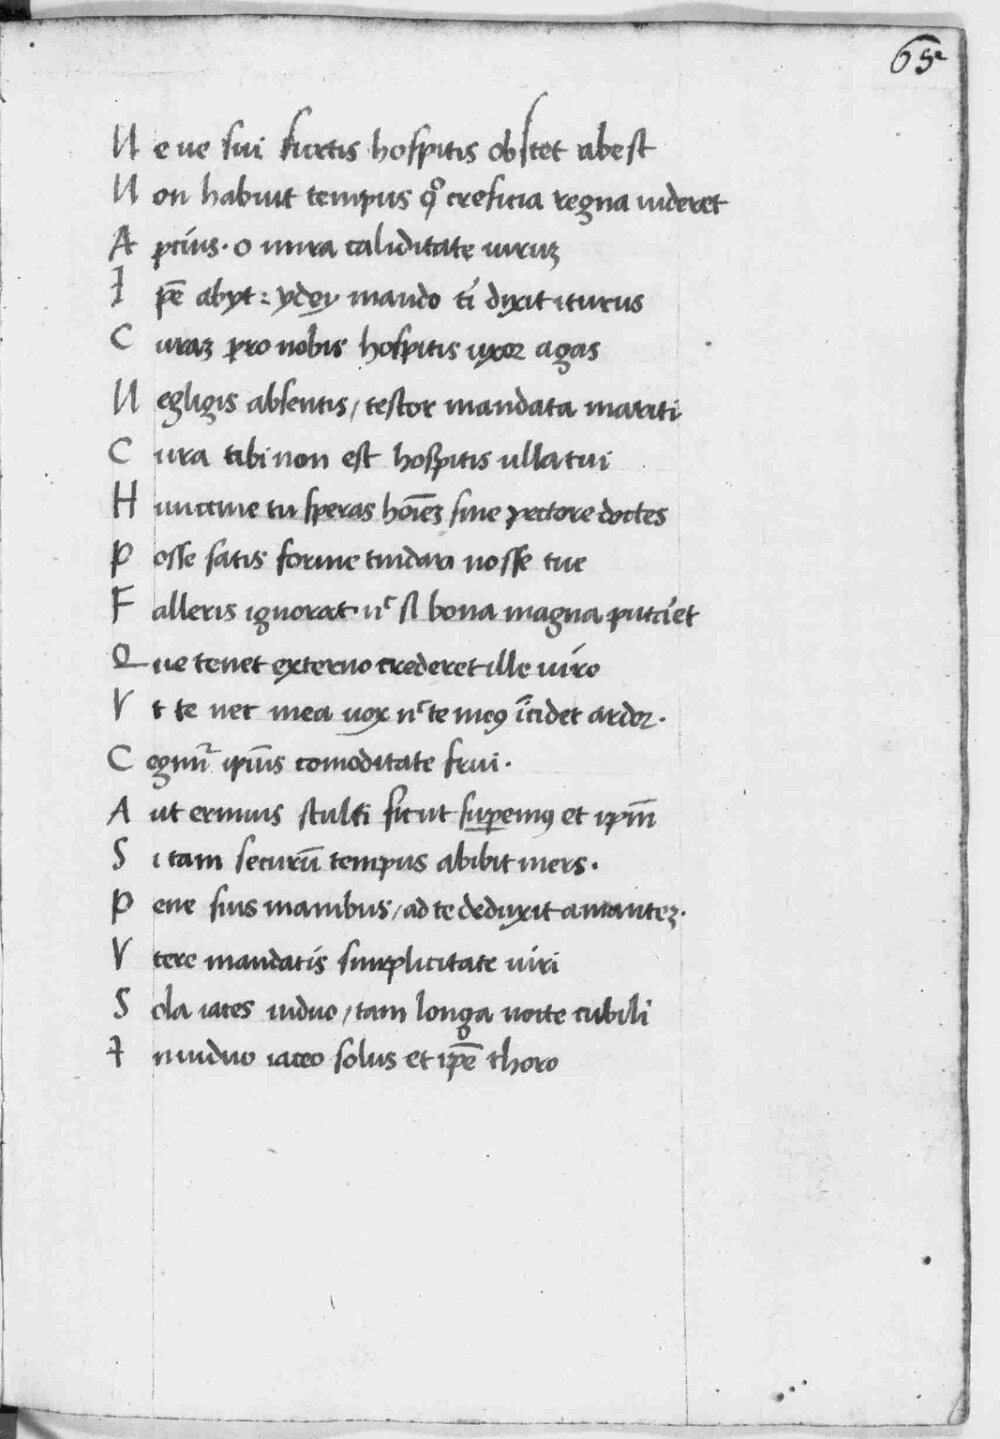 65
N e ue sui furtis hospitis obstet abest
N on habuit tempus q̊ cresicia regna uideret
A pcius. o mira caliditate uiruꝫ
I pē abyt: ydey mando ti dixit iturus
C uraꝫ pro nobis hospitis uxor agas
N egligis absentis / testor mandata mariti
C ura tibi non est hospitis ulla tui
H unccine tu speras hoīeꝫ sine pectore doctes
P osse satis forme tindari nosse tue
F alleris ignorat nͨ si bona magna putaret
Q ue tenet externo crederet ille uiro
V t te nec mea uox nͨ te meꝯ īcidet ardor.
C egimᷣ ipīus comoditate frui.
A ut erimus stulti sicut supemꝯ et ipm̄
S i tam securū tempus abibit iners.
P ene suis manibus / ad te deduxit amanteꝫ.
V tere mandatis simplicitate uiri
S ola iaces uiduo / tam longa nocte cubili
I n uiduo iaceo solus et ipē thoro